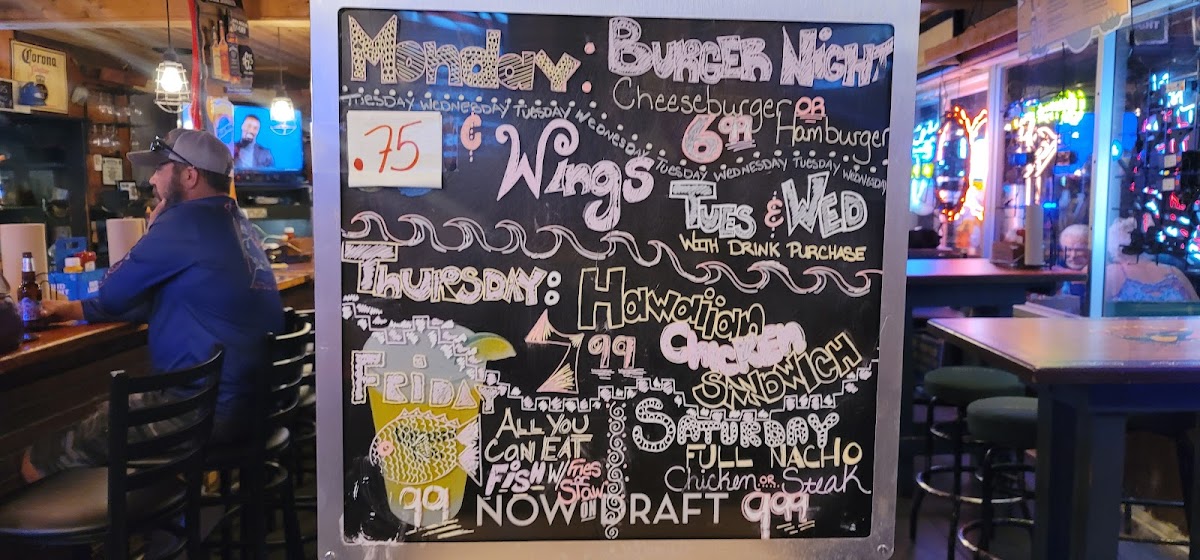 Monday: BURGER NIGHT
Cheeseburger OR
Hamburger
6.99
TUESDAY WEDNESDAY TUESDAY WEDNESDAY TUESDAY WEDNESDAY TUESDAY WEDNESDAY
.75 ¢ Wings
TUES & WED
WITH DRINK PURCHASE
THURSDAY:
Hawaiian
CHICKEN
SANDWICH
7.99
FRIDAY
ALL YOU
CAN EAT
FISH W/ FRIES
or SLAW
99
SATURDAY
FULL NACHO
Chicken OR Steak
9.99
NOW ON DRAFT
Corona